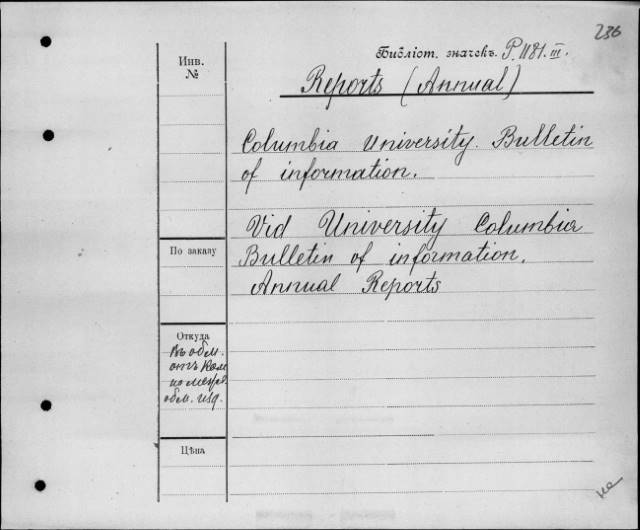 236
Библіот. значекъ. P. 1181. III.
Инв.
№
Reports (Annual)
Columbia University. Bulletin
of information.
Vid University Columbia
По заказу
Bulletin of information.
Annual Reports
Откуда
Въ обм.
отъ Ком
по межд.
обм. изд.
Цѣна